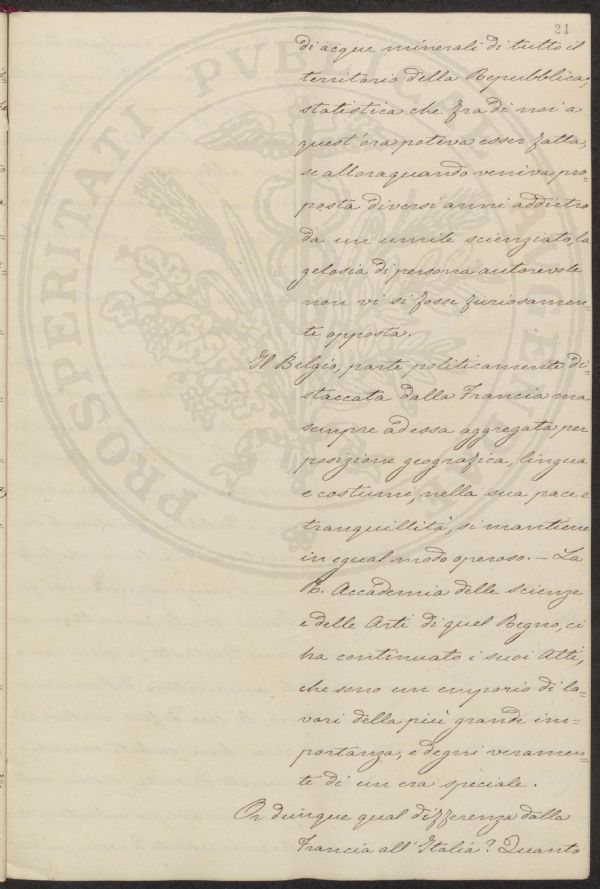 21
di acque minerali di tutto il
territorio della Repubblica;
statistica che fra di noi a
quest'ora poteva esser fatta,
se allora quando veniva pro=
posta diversi anni addietro
da un umile scienziato, la
gelosia di persona autorevole
non vi si fosse furiosamen=
te opposta.
Il Belgio, parte politicamente di=
staccata dalla Francia ma
sempre ad essa aggregata per
posizione geografica, lingua
e costumi, nella sua pace e
tranquillità, si mantiene
in egual modo operoso. — La
R. Accademia delle scienze
e delle Arti di quel Regno, ci
ha continuato i suoi Atti,
che sono un emporio di la=
vori della più grande im=
portanza, e degni veramen=
te di un era speciale.
Or dunque qual differenza dalla
Francia all'Italia? Quanto
PROSPERITATI PVBLICAE AVGENDAE